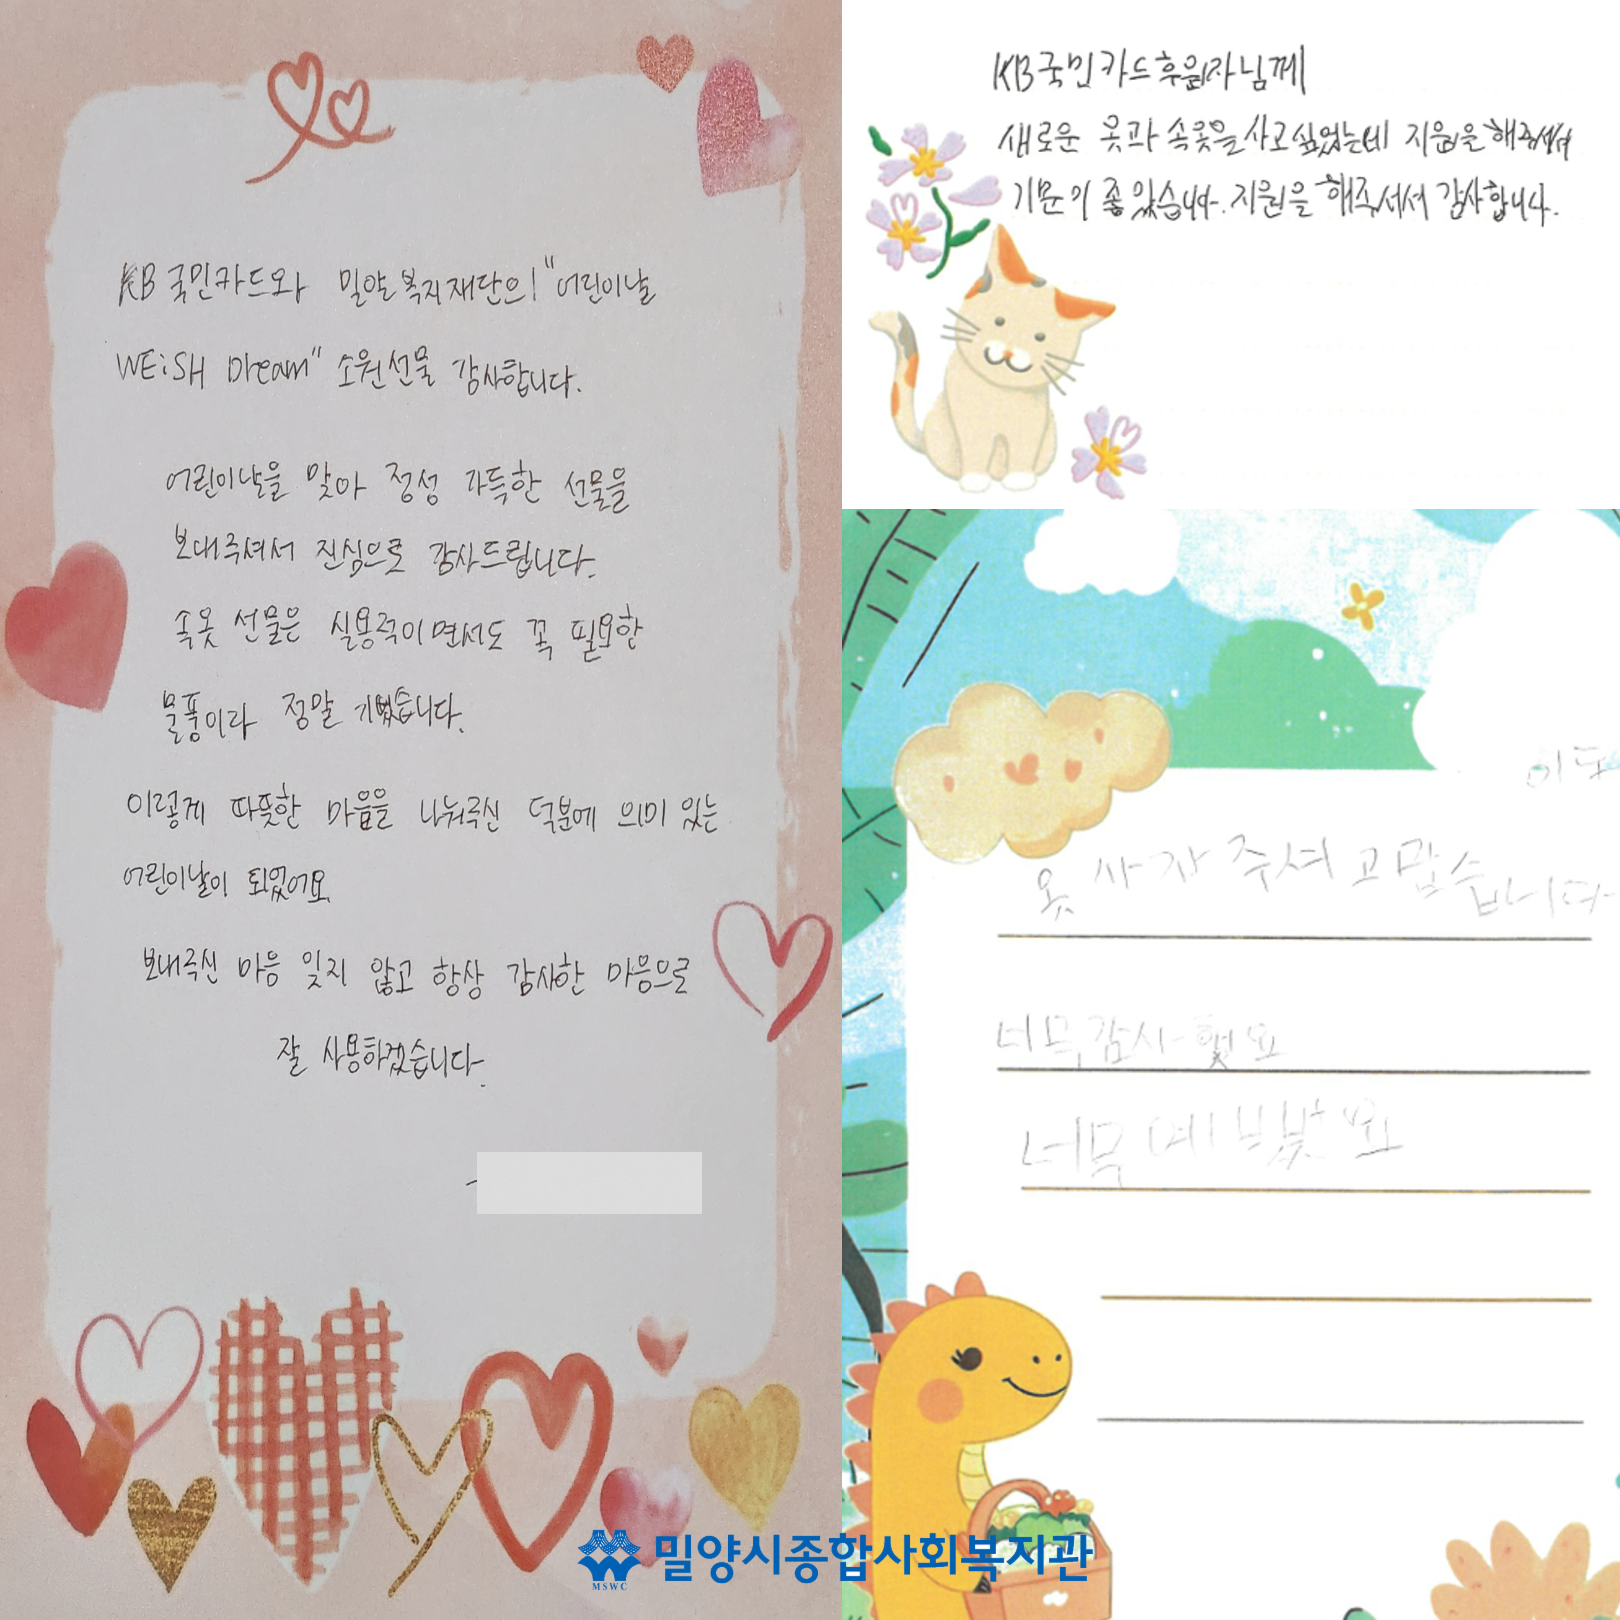 KB국민카드와 밀양복지재단의 "어린이날
WEiSH Dream" 소원선물 감사합니다.
어린이날을 맞아 정성 가득한 선물을
보내주셔서 진심으로 감사드립니다.
속옷 선물은 실용적이면서도 꼭 필요한
물품이라 정말 기뻤습니다.
이렇게 따뜻한 마음을 나눠주신 덕분에 의미 있는
어린이날이 되었어요
보내주신 마음 잊지 않고 항상 감사한 마음으로
잘 사용하겠습니다.
KB국민카드후원자님께
새로운 옷과 속옷을 사고싶었는데 지원을 해주셔서
기분이 좋았습니다. 지원을 해주셔서 감사합니다.
옷 사자 주셔 고맙습니다
너무 감사했요
너무 예쁘요
밀양시종합사회복지관
MSWC